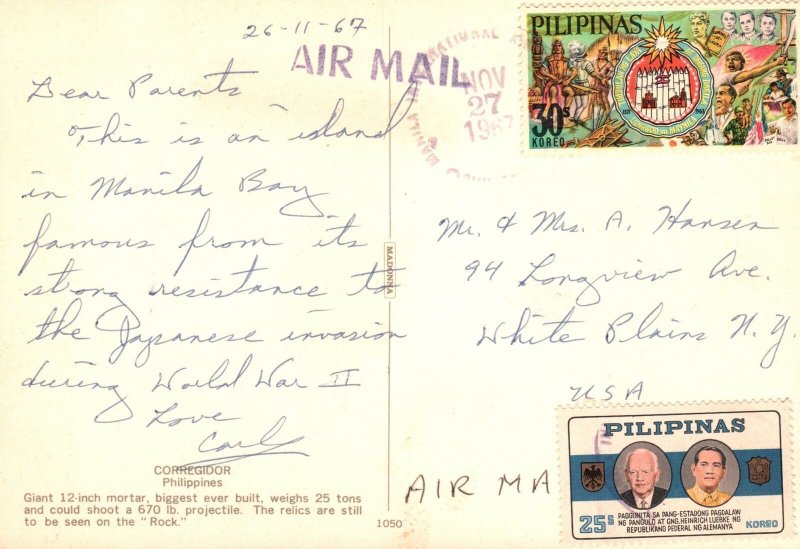 26-11-67
AIR MAIL
NOV
27
1967
MANILA
PILIPINAS
30s
KOREO
Dear Parents
This is an island
in Manila Bay
famous from its
strong resistance to
the Japanese invasion
during World War II
Love
Carl
MADONNA
Mr. & Mrs. A. Hansen
94 Longview Ave.
White Plains N.Y.
USA
AIR MA
PILIPINAS
PAGGUNITA SA PANG-ESTADONG PAGDALAW
NG PANGULO AT GNG. HEINRICH LUEBKE NG
REPUBLIKANG PEDERAL NG ALEMANYA
25s
KOREO
CORREGIDOR
Philippines
Giant 12-inch mortar, biggest ever built, weighs 25 tons
and could shoot a 670 lb. projectile. The relics are still
to be seen on the "Rock."
1050